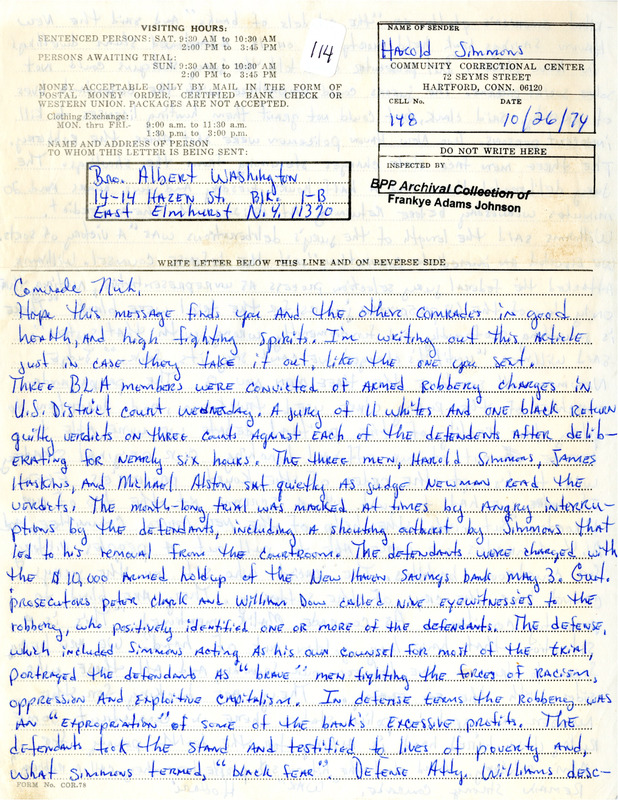 VISITING HOURS:
SENTENCED PERSONS: SAT. 9:30 AM to 10:30 AM
2:00 PM to 3:45 PM
PERSONS AWAITING TRIAL:
SUN. 9:30 AM to 10:30 AM
2:00 PM to 3:45 PM
MONEY ACCEPTABLE ONLY BY MAIL IN THE FORM OF
POSTAL MONEY ORDER, CERTIFIED BANK CHECK OR
WESTERN UNION. PACKAGES ARE NOT ACCEPTED.
Clothing Exchange:
MON. thru FRI.- 9:00 a.m. to 11:30 a.m.
1:30 p.m. to 3:00 p.m.
NAME AND ADDRESS OF PERSON
TO WHOM THIS LETTER IS BEING SENT:
Bro. Albert Washington
14-14 HAZEN St. Blk. 1-B
East Elmhurst N.Y. 11370
114
NAME OF SENDER
Harold Simmons
COMMUNITY CORRECTIONAL CENTER
72 SEYMS STREET
HARTFORD, CONN. 06120
CELL No. DATE
148 10/26/74
DO NOT WRITE HERE
INSPECTED BY
BPP Archival Collection of
Frankye Adams Johnson
WRITE LETTER BELOW THIS LINE AND ON REVERSE SIDE
Comrade Nuh,
Hope this message finds you and the other comrades in good
health, and high fighting spirits. I'm writing out this article
just in case they take it out, like the one you sent.
Three BLA members were convicted of armed robbery charges in
U.S. District court Wednesday. A jury of 11 whites and one black return
guilty verdicts on three counts against each of the defendents after delib-
erating for nearly six hours. The three men, Harold Simmons, James
Haskins, and Michael Alston sat quietly as judge Newman read the
verdicts. The month-long trial was marked at times by angry interru-
ptions by the defendants, including a shouting outburst by Simmons that
led to his removal from the courtroom. The defendants were charged with
the $10,000 armed holdup of the New Haven Savings bank may 3. Govt.
prosecutors peter Clark and William Dow called nine eyewitnesses to the
robbery, who positively identified one or more of the defendants. The defense,
which included Simmons acting as his own counsel for most of the trial,
portrayed the defendants as "brave" men fighting the forces of racism,
oppression and exploitive capitalism. In defense terms the robbery was
an "expropriation" of some of the bank's excessive profits. The
defendants took the stand and testified to lives of poverty and,
what Simmons termed, "black fear". Defense Atty. Williams desc-
FORM No. COR.78